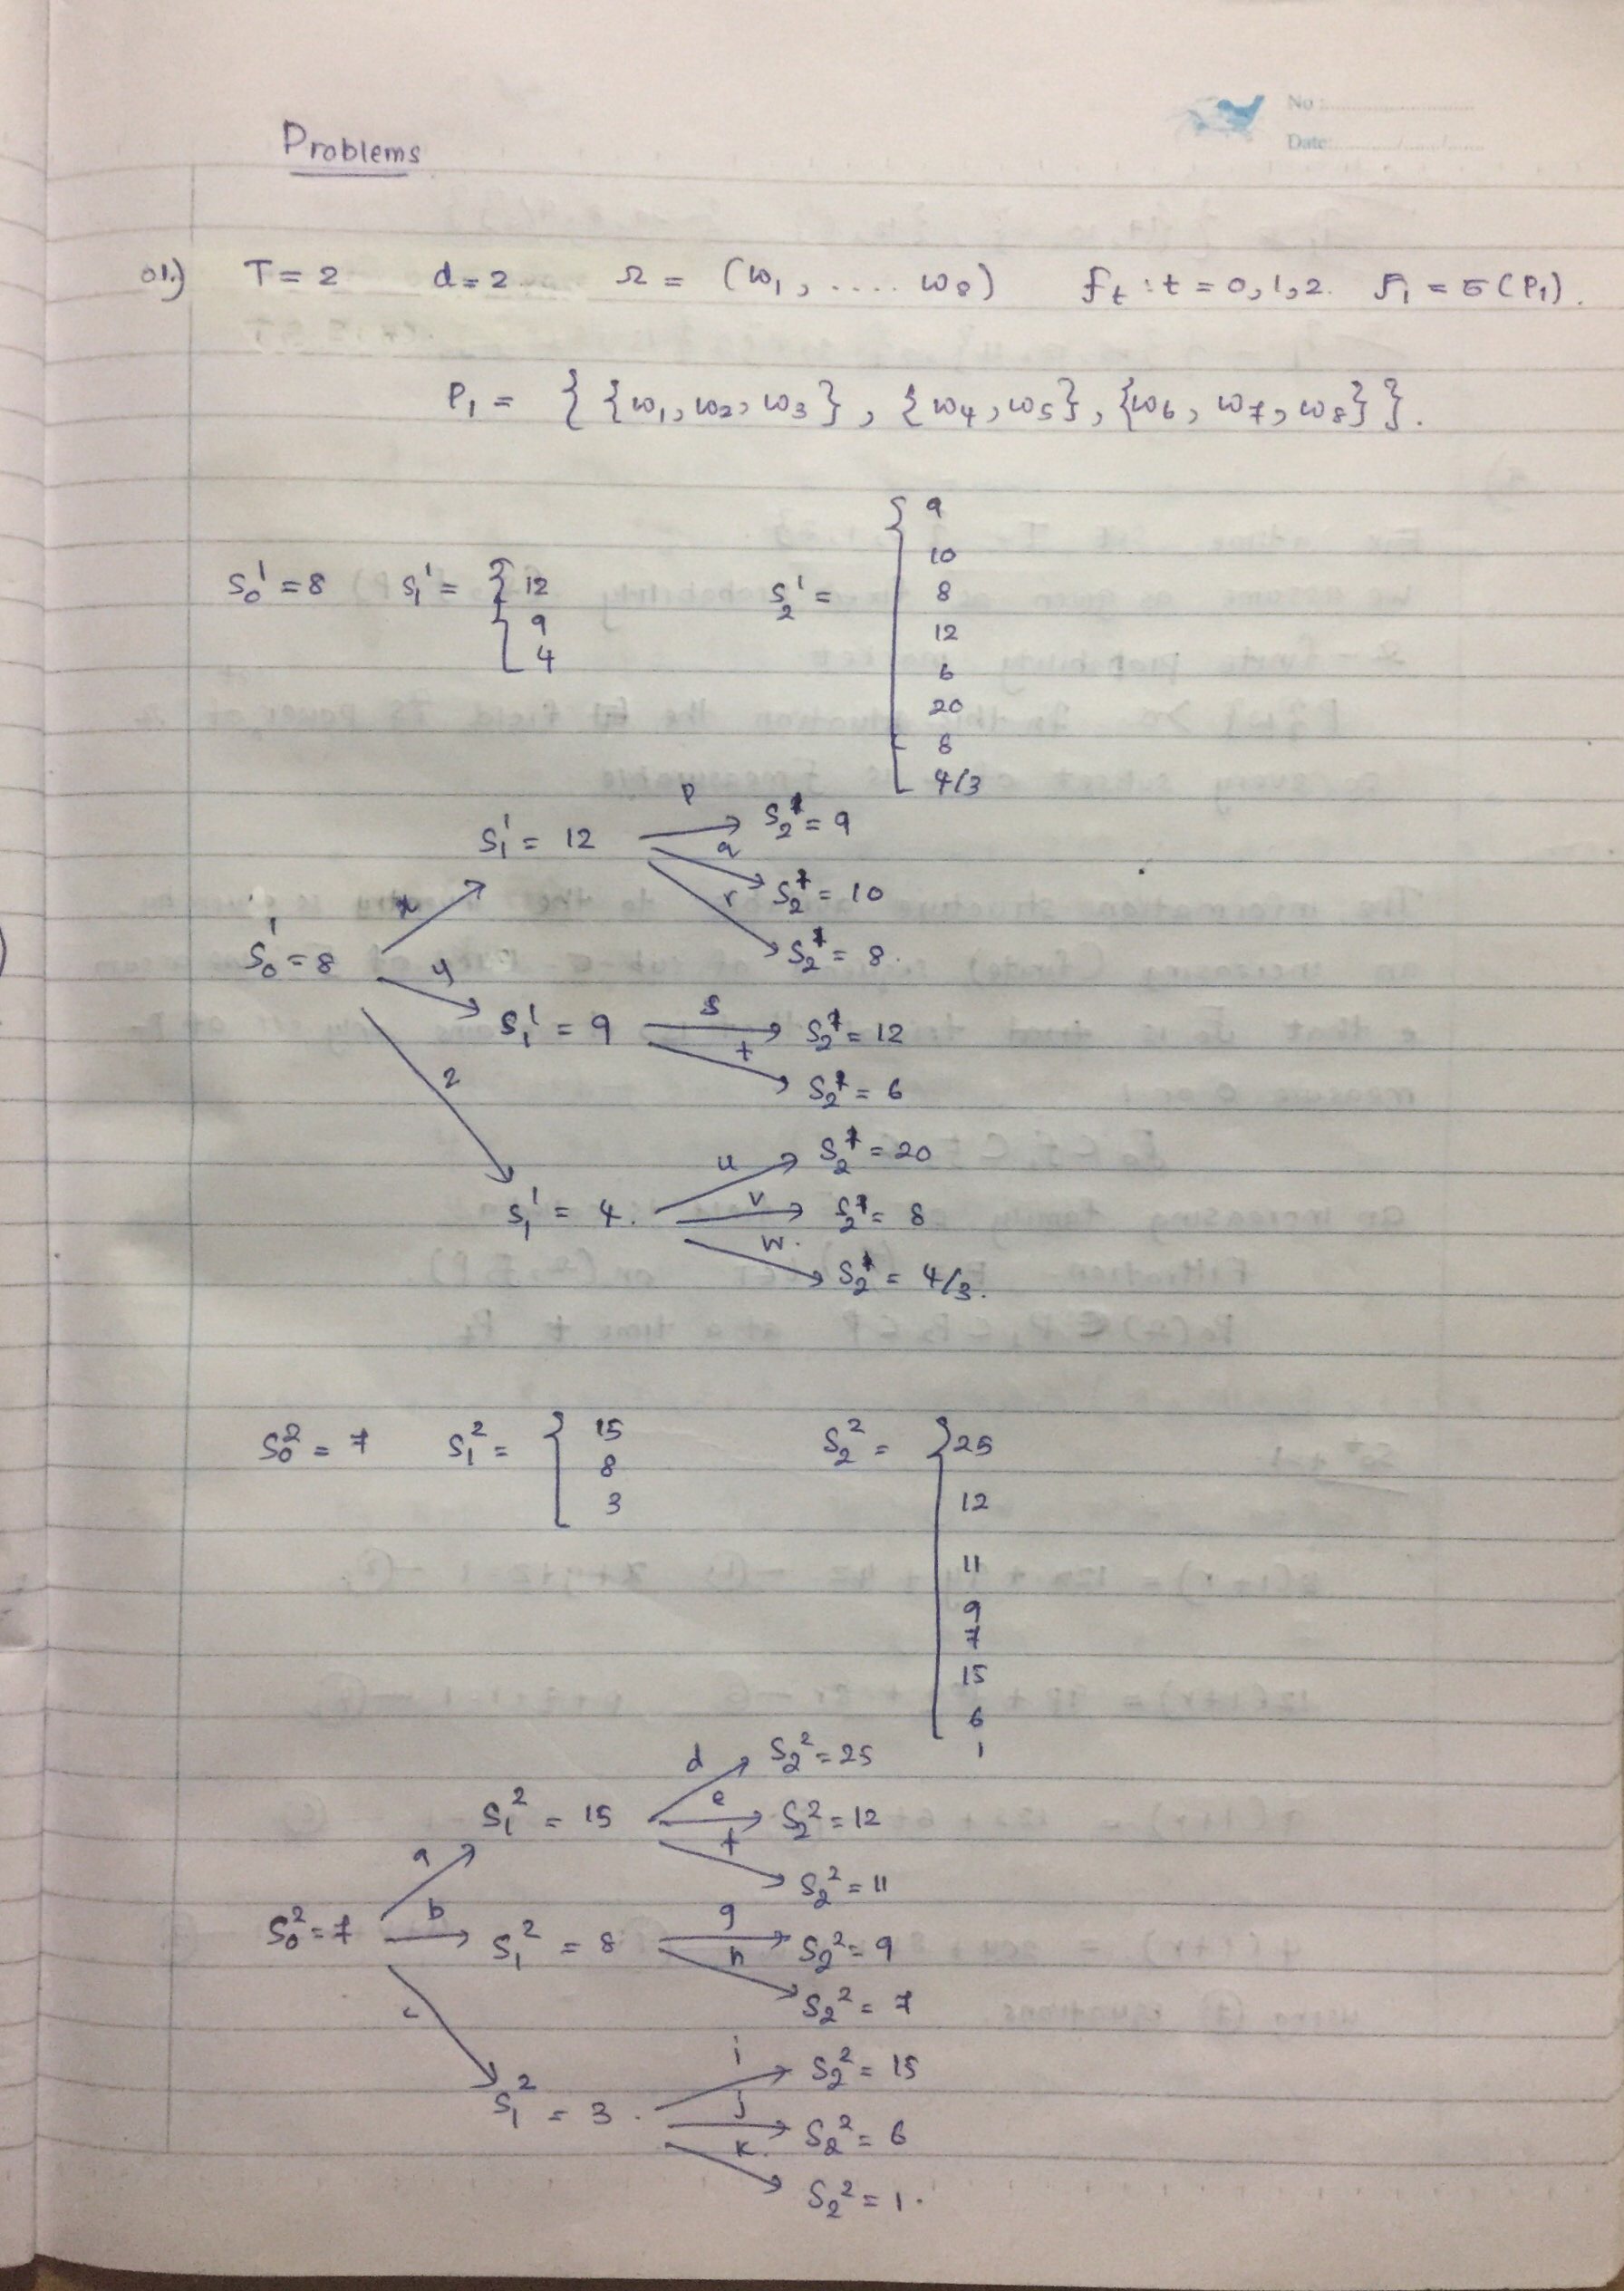 No :
Date:
Problems
01.) T = 2 d = 2 Ω = (ω₁, .... ω₈) f_t : t = 0, 1, 2. F₁ = σ(P₁).
P₁ = { {ω₁, ω₂, ω₃}, {ω₄, ω₅}, {ω₆, ω₇, ω₈} }.
S₀¹ = 8 S₁¹ = { 12
9
4
S₂¹ = { 9
10
8
12
6
20
8
4/3
S₀¹ = 8
x S₁¹ = 12
p S₂¹ = 9
q S₂¹ = 10
r S₂¹ = 8.
y S₁¹ = 9
s S₂¹ = 12
t S₂¹ = 6
z S₁¹ = 4.
u S₂¹ = 20
v S₂¹ = 8
w. S₂¹ = 4/3.
S₀² = 7 S₁² = { 15
8
3
S₂² = { 25
12
11
9
7
15
6
1
S₀² = 7
a S₁² = 15
d S₂² = 25
e S₂² = 12
f S₂² = 11
b S₁² = 8
g S₂² = 9
h S₂² = 7
c S₁² = 3.
i S₂² = 15
j S₂² = 6
k. S₂² = 1.